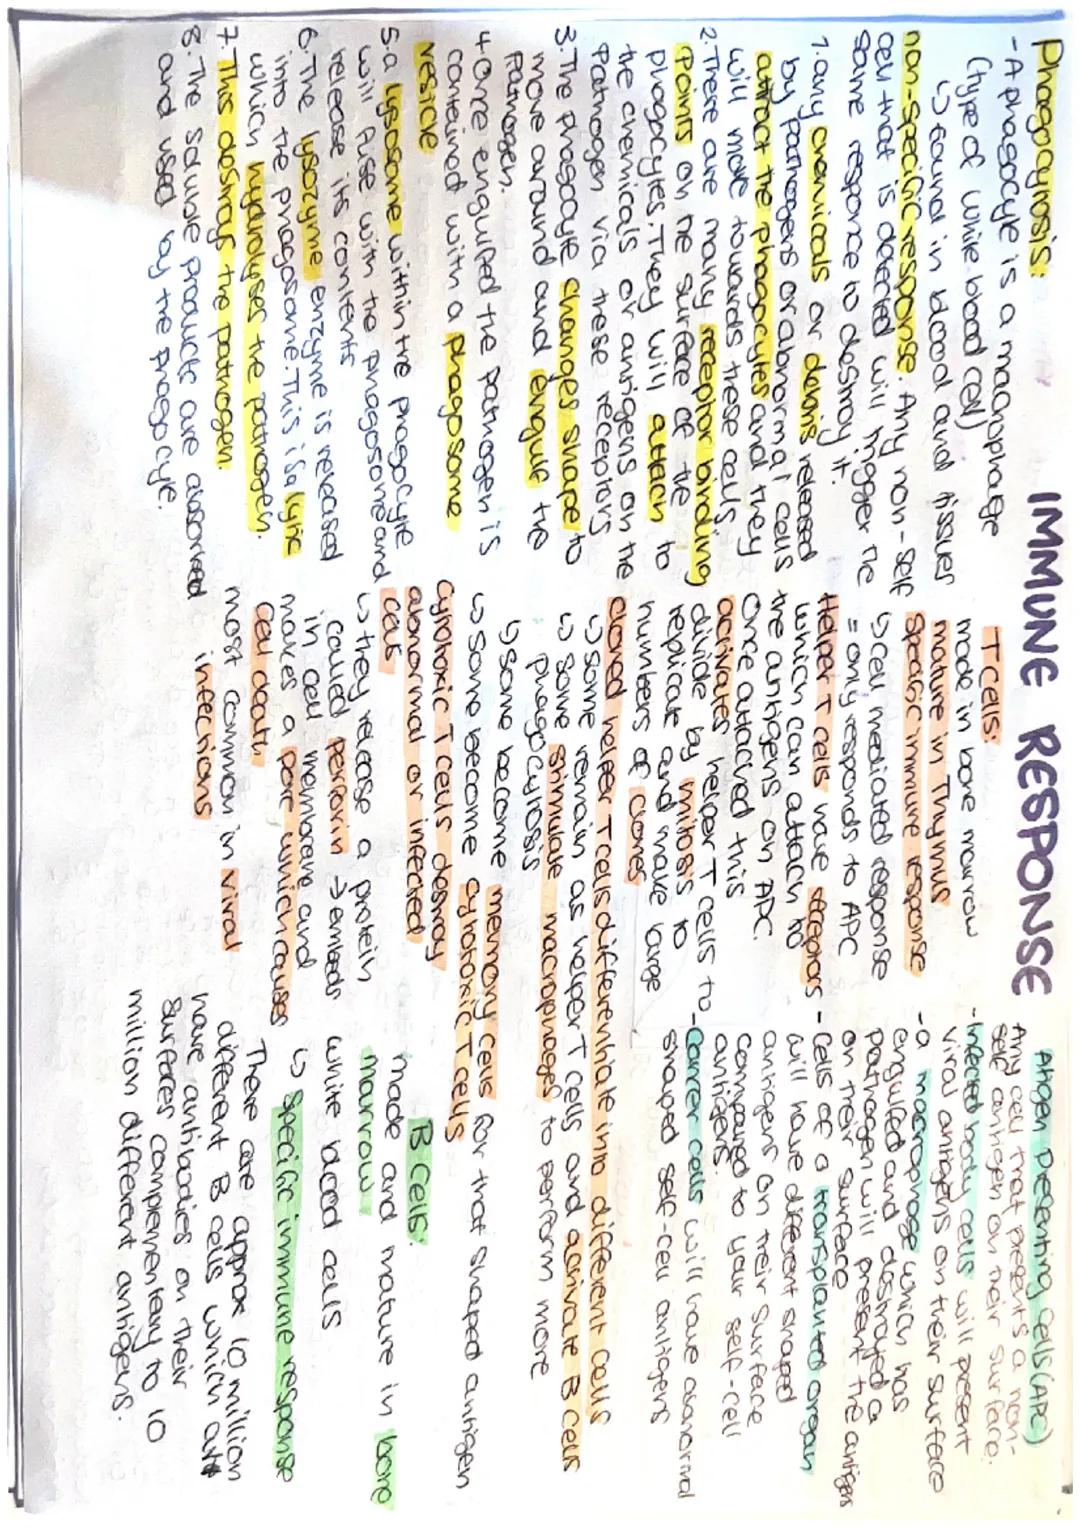 IMMUNE RESPONSE
Phagocytosis:
- A phagocyte is a macrophage
(type of white blood cell)
↳ found in blood and tissues
non-specific response. Any non-self
cell that is detected will trigger the
same response to destroy it.
1. any chemicals or debris released
by pathogens or abnormal cells
attract the phagocytes and they
will move towards these cells
2. There are many receptor binding
points on the surface of the
phagocytes. They will attach to
the chemicals or antigens on the
pathogen via these receptors
3. The phagocyte changes shape to
move around and engulf the
pathogen.
4. once engulfed the pathogen is
contained with a phagosome
vesicle
5. a lysosome within the phagocyte
will fuse with the phagosome and
release its contents
6. The lysozyme enzyme is released
into the phagosome. This is a lytic
which hydrolyses the pathogen.
7. This destroys the pathogen.
8. The soluble products are absorbed
and used by the phagocyte.
T cells:
made in bone marrow
mature in Thymus
specific immune response
↳ cell mediated response
= only responds to APC
Helper T cells have receptors
which can attach to
the antigens on APC.
Once attached this
activates helper T cells to
divide by mitosis to
replicate and make large
numbers of clones
cloned helper T cells differenhiate into different cells
↳ some remain as helper T cells and activate B cells
↳ some stimulate macrophages to perform more
phagocytosis
↳ some become memory cells for that shaped antigen
↳ some become cytotoxic T cells
Cytotoxic T cells destroy
abnormal or infected
cells
↳ they release a protein
called perforin → embeds
in cell membrane and
makes a pore which causes
cell death
most common in viral
infections
Atigen Presenting Cells (APC)
Any cell that presents a non-
self antigen on their surface.
- Infected body cells will present
viral antigens on their surface
- a macrophage which has
engulfed and destroyed a
pathogen will present the antigens
on their surface
- cells of a transplanted organ
will have different shaped
antigens on their surface
compared to your self-cell
antigens.
- Cancer cells will have abnormal
shaped self-cell antigens
B cells:
made and mature in bone
marrow
white blood cells
↳ specific immune response
There are approx 10 million
different B cells which
have antibodies on their
surfaces complementary to 10
million different antigens.